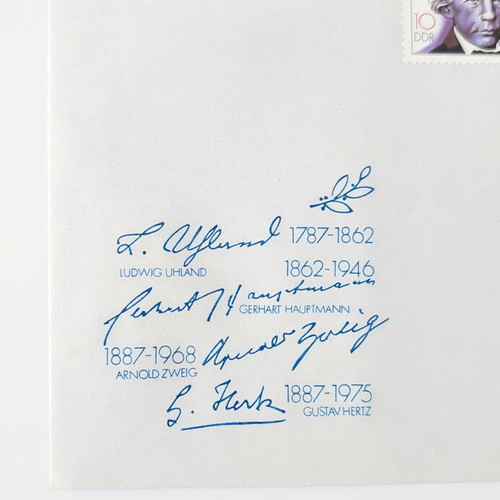 10
DDR
L. Uhland 1787-1862
LUDWIG UHLAND
1862-1946
Gerhart Hauptmann
GERHART HAUPTMANN
1887-1968 Arnold Zweig
ARNOLD ZWEIG
G. Hertz 1887-1975
GUSTAV HERTZ